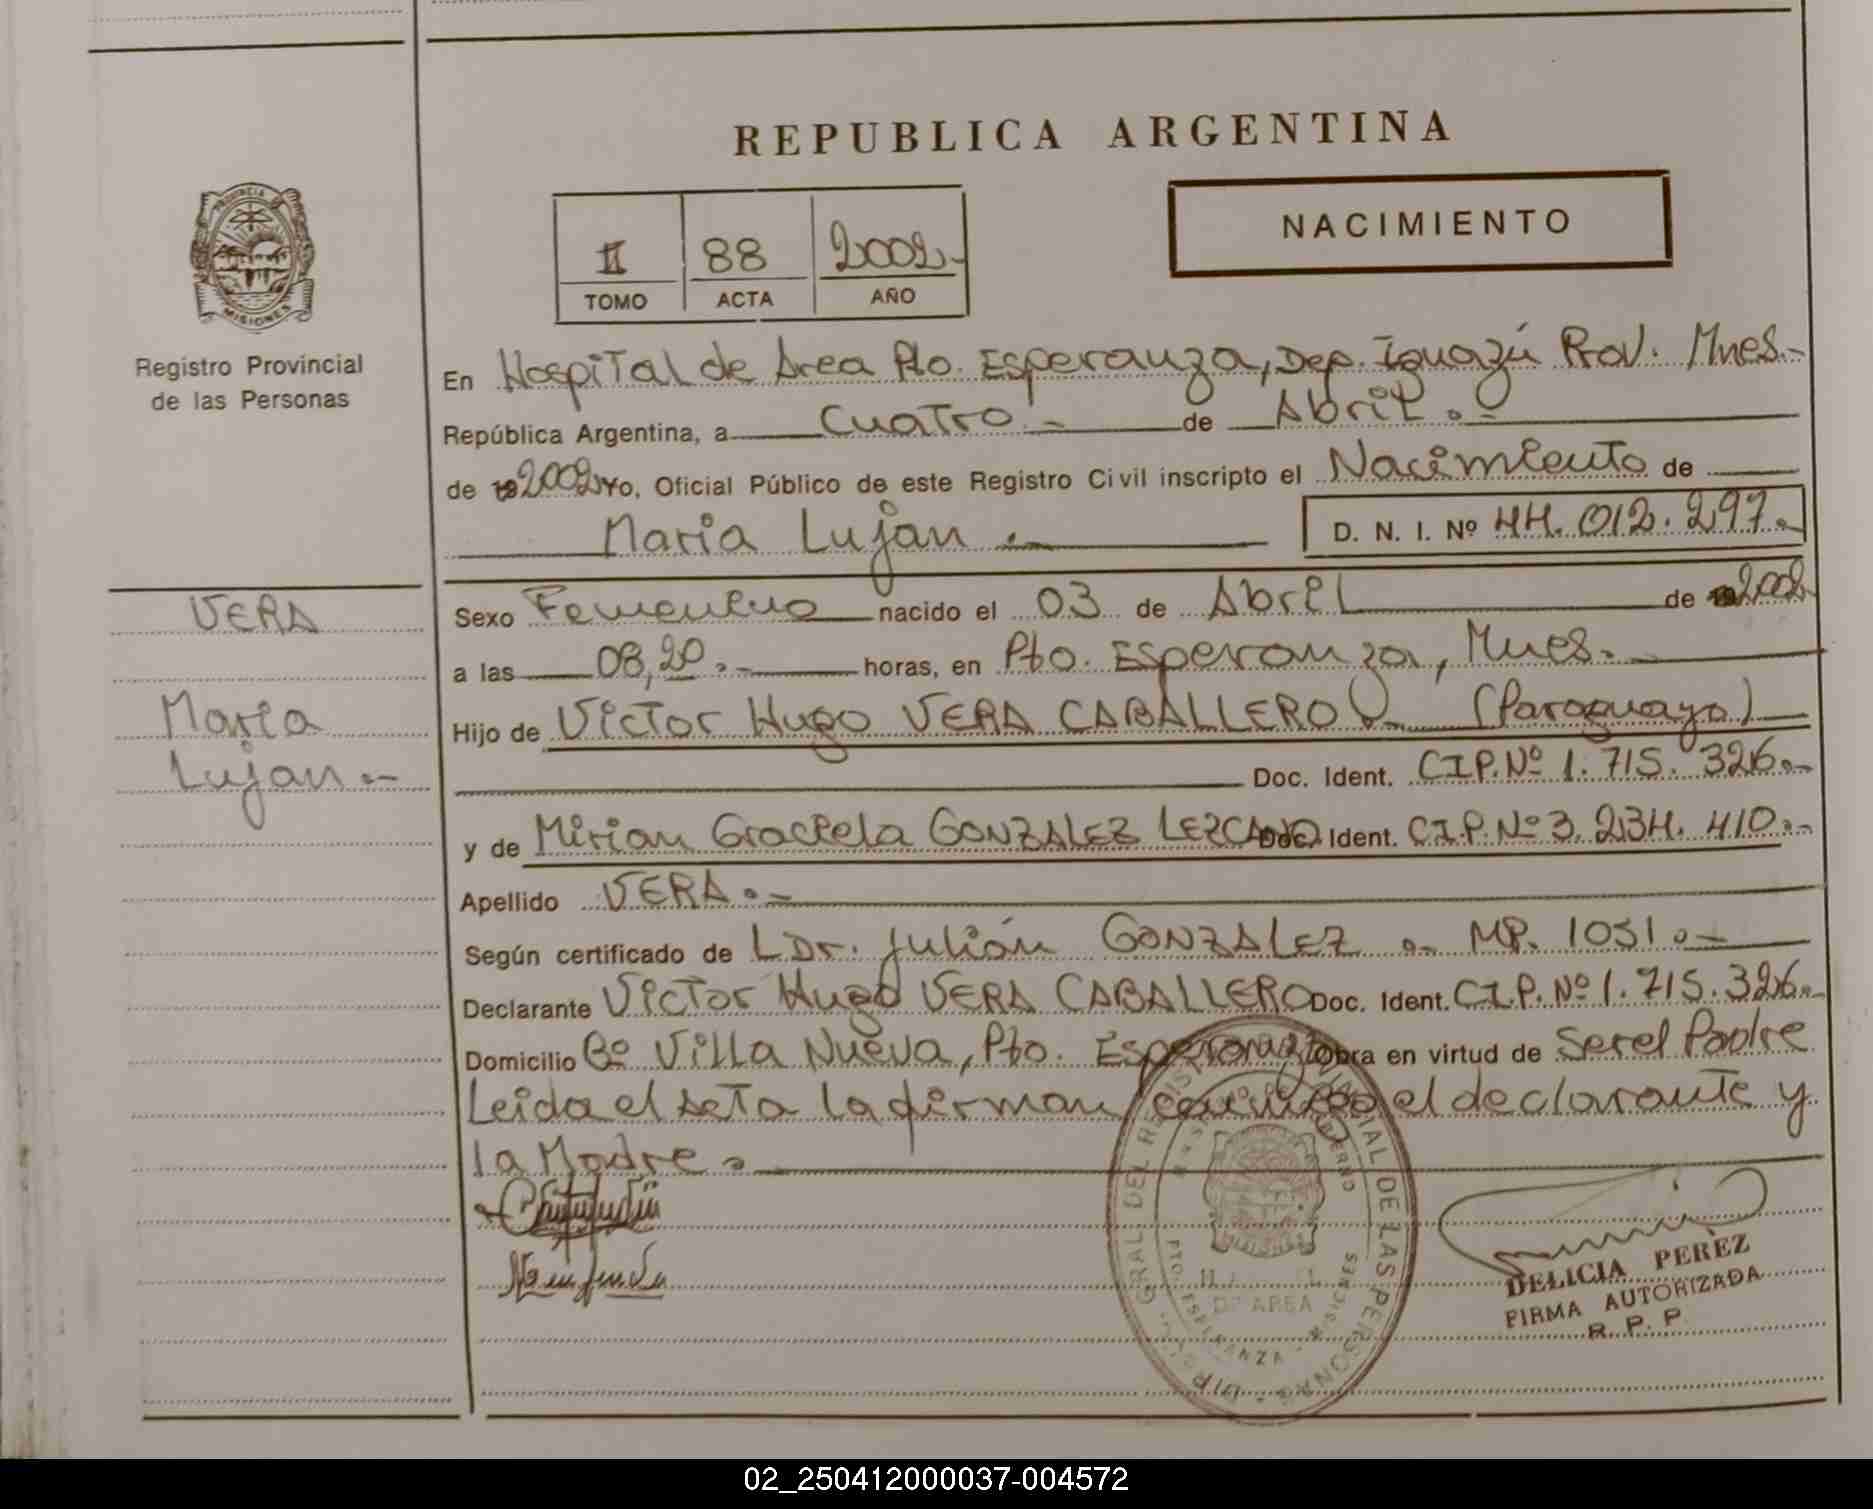 REPUBLICA ARGENTINA
NACIMIENTO
II 88 2002.-
TOMO ACTA AÑO
PROVINCIA
MISIONES
Registro Provincial
de las Personas
VERA
Maria
Lujan.-
En Hospital de Area Pto. Esperanza, Dep. Iguazú Prov. Mnes.-
República Argentina, a Cuatro.- de Abril.-
de 2002 Yo, Oficial Público de este Registro Civil inscripto el Nacimiento de
Maria Lujan.- D. N. I. Nº 44.012.297.-
Sexo Femenino nacido el 03 de Abril de 2002.
a las 08,20.- horas, en Pto. Esperanza, Mnes.-
Hijo de Victor Hugo VERA CABALLERO (Paraguayo)
Doc. Ident. C.I.P. Nº 1.715.326.-
y de Mirian Graciela GONZALEZ LEZCANO Doc. Ident. C.I.P. Nº 3.234.410.-
Apellido VERA.-
Según certificado de Dr. Julián GONZALEZ.- MP. 1051.-
Declarante Victor Hugo VERA CABALLERO Doc. Ident. C.I.P. Nº 1.715.326.-
Domicilio Bº Villa Nueva, Pto. Esperanza Obra en virtud de Ser el Padre
Leida el Acta la firman conmigo el declarante y
la Madre.-
DELICIA PEREZ
FIRMA AUTORIZADA
R. P. P.
GRAL DEL REGISTRO PROVINCIAL DE LAS PERSONAS
DE AREA
PTO. ESPERANZA - MISIONES
02_250412000037-004572